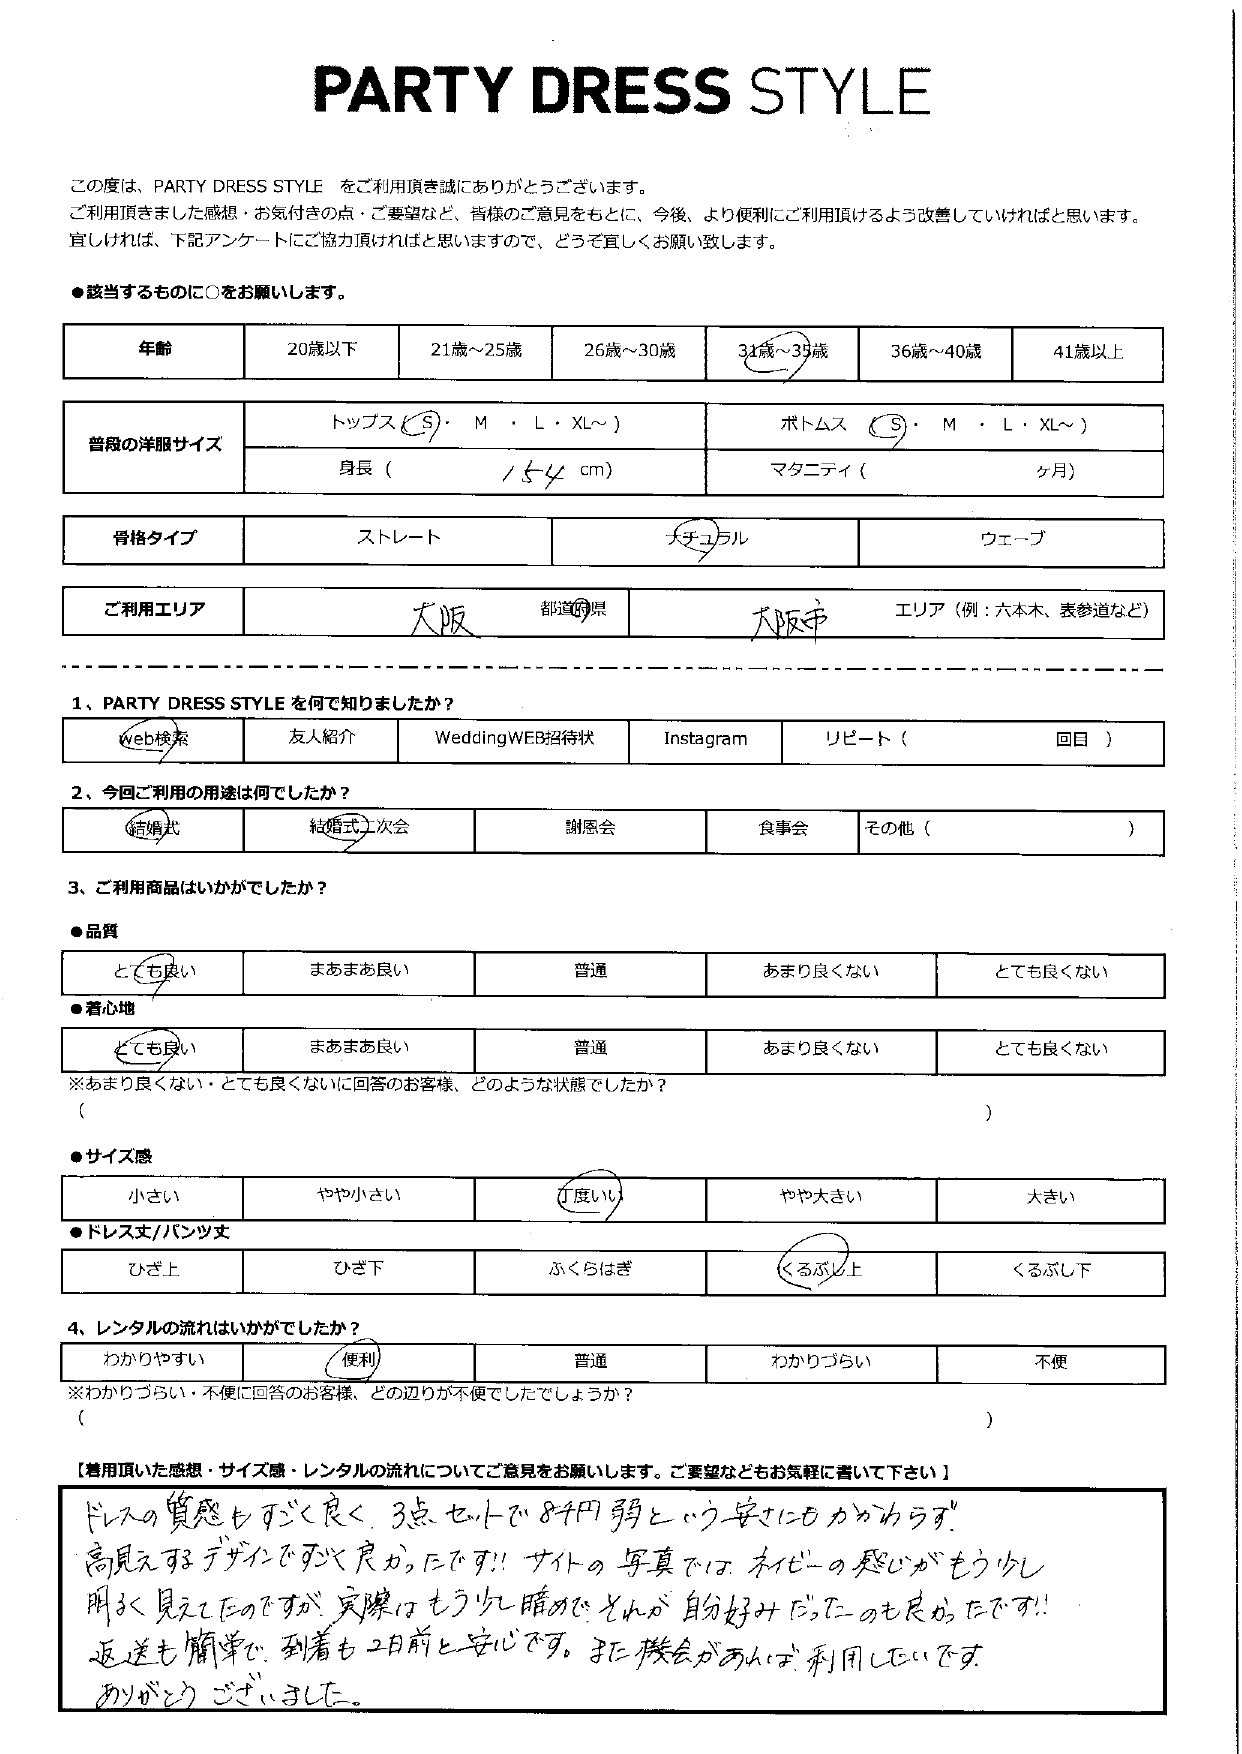 PARTY DRESS STYLE
この度は、PARTY DRESS STYLE をご利用頂き誠にありがとうございます。
ご利用頂きました感想・お気付きの点・ご要望など、皆様のご意見をもとに、今後、より便利にご利用頂けるよう改善していければと思います。
宜しければ、下記アンケートにご協力頂ければと思いますので、どうぞ宜しくお願い致します。
●該当するものに○をお願いします。
年齢 20歳以下 21歳～25歳 26歳～30歳 31歳～35歳 36歳～40歳 41歳以上
普段の洋服サイズ トップス ( S ・ M ・ L ・ XL～ ) ボトムス ( S ・ M ・ L ・ XL～ )
身長 ( 154 cm) マタニティ ( ヶ月)
骨格タイプ ストレート ナチュラル ウェーブ
ご利用エリア 大阪 都道府県 大阪市 エリア（例：六本木、表参道など）
1、PARTY DRESS STYLE を何で知りましたか？
web検索 友人紹介 WeddingWEB招待状 Instagram リピート ( 回目 )
2、今回ご利用の用途は何でしたか？
結婚式 結婚式二次会 謝恩会 食事会 その他 ( )
3、ご利用商品はいかがでしたか？
●品質
とても良い まあまあ良い 普通 あまり良くない とても良くない
●着心地
とても良い まあまあ良い 普通 あまり良くない とても良くない
※あまり良くない・とても良くないに回答のお客様、どのような状態でしたか？
( )
●サイズ感
小さい やや小さい 丁度いい やや大きい 大きい
●ドレス丈/パンツ丈
ひざ上 ひざ下 ふくらはぎ くるぶし上 くるぶし下
4、レンタルの流れはいかがでしたか？
わかりやすい 便利 普通 わかりづらい 不便
※わかりづらい・不便に回答のお客様、どの辺りが不便でしたでしょうか？
( )
【着用頂いた感想・サイズ感・レンタルの流れについてご意見をお願いします。ご要望などもお気軽に書いて下さい】
ドレスの質感もすごく良く、3点セットで8千円弱という安さにもかかわらず、
高見えするデザインですごく良かったです!! サイトの写真では、ネイビーの感じがもう少し
明るく見えてたのですが、実際はもう少し暗めで、それが自分好みだったのも良かったです!!
返送も簡単で、到着も2日前と安心です。また機会があれば、利用したいです。
ありがとうございました。